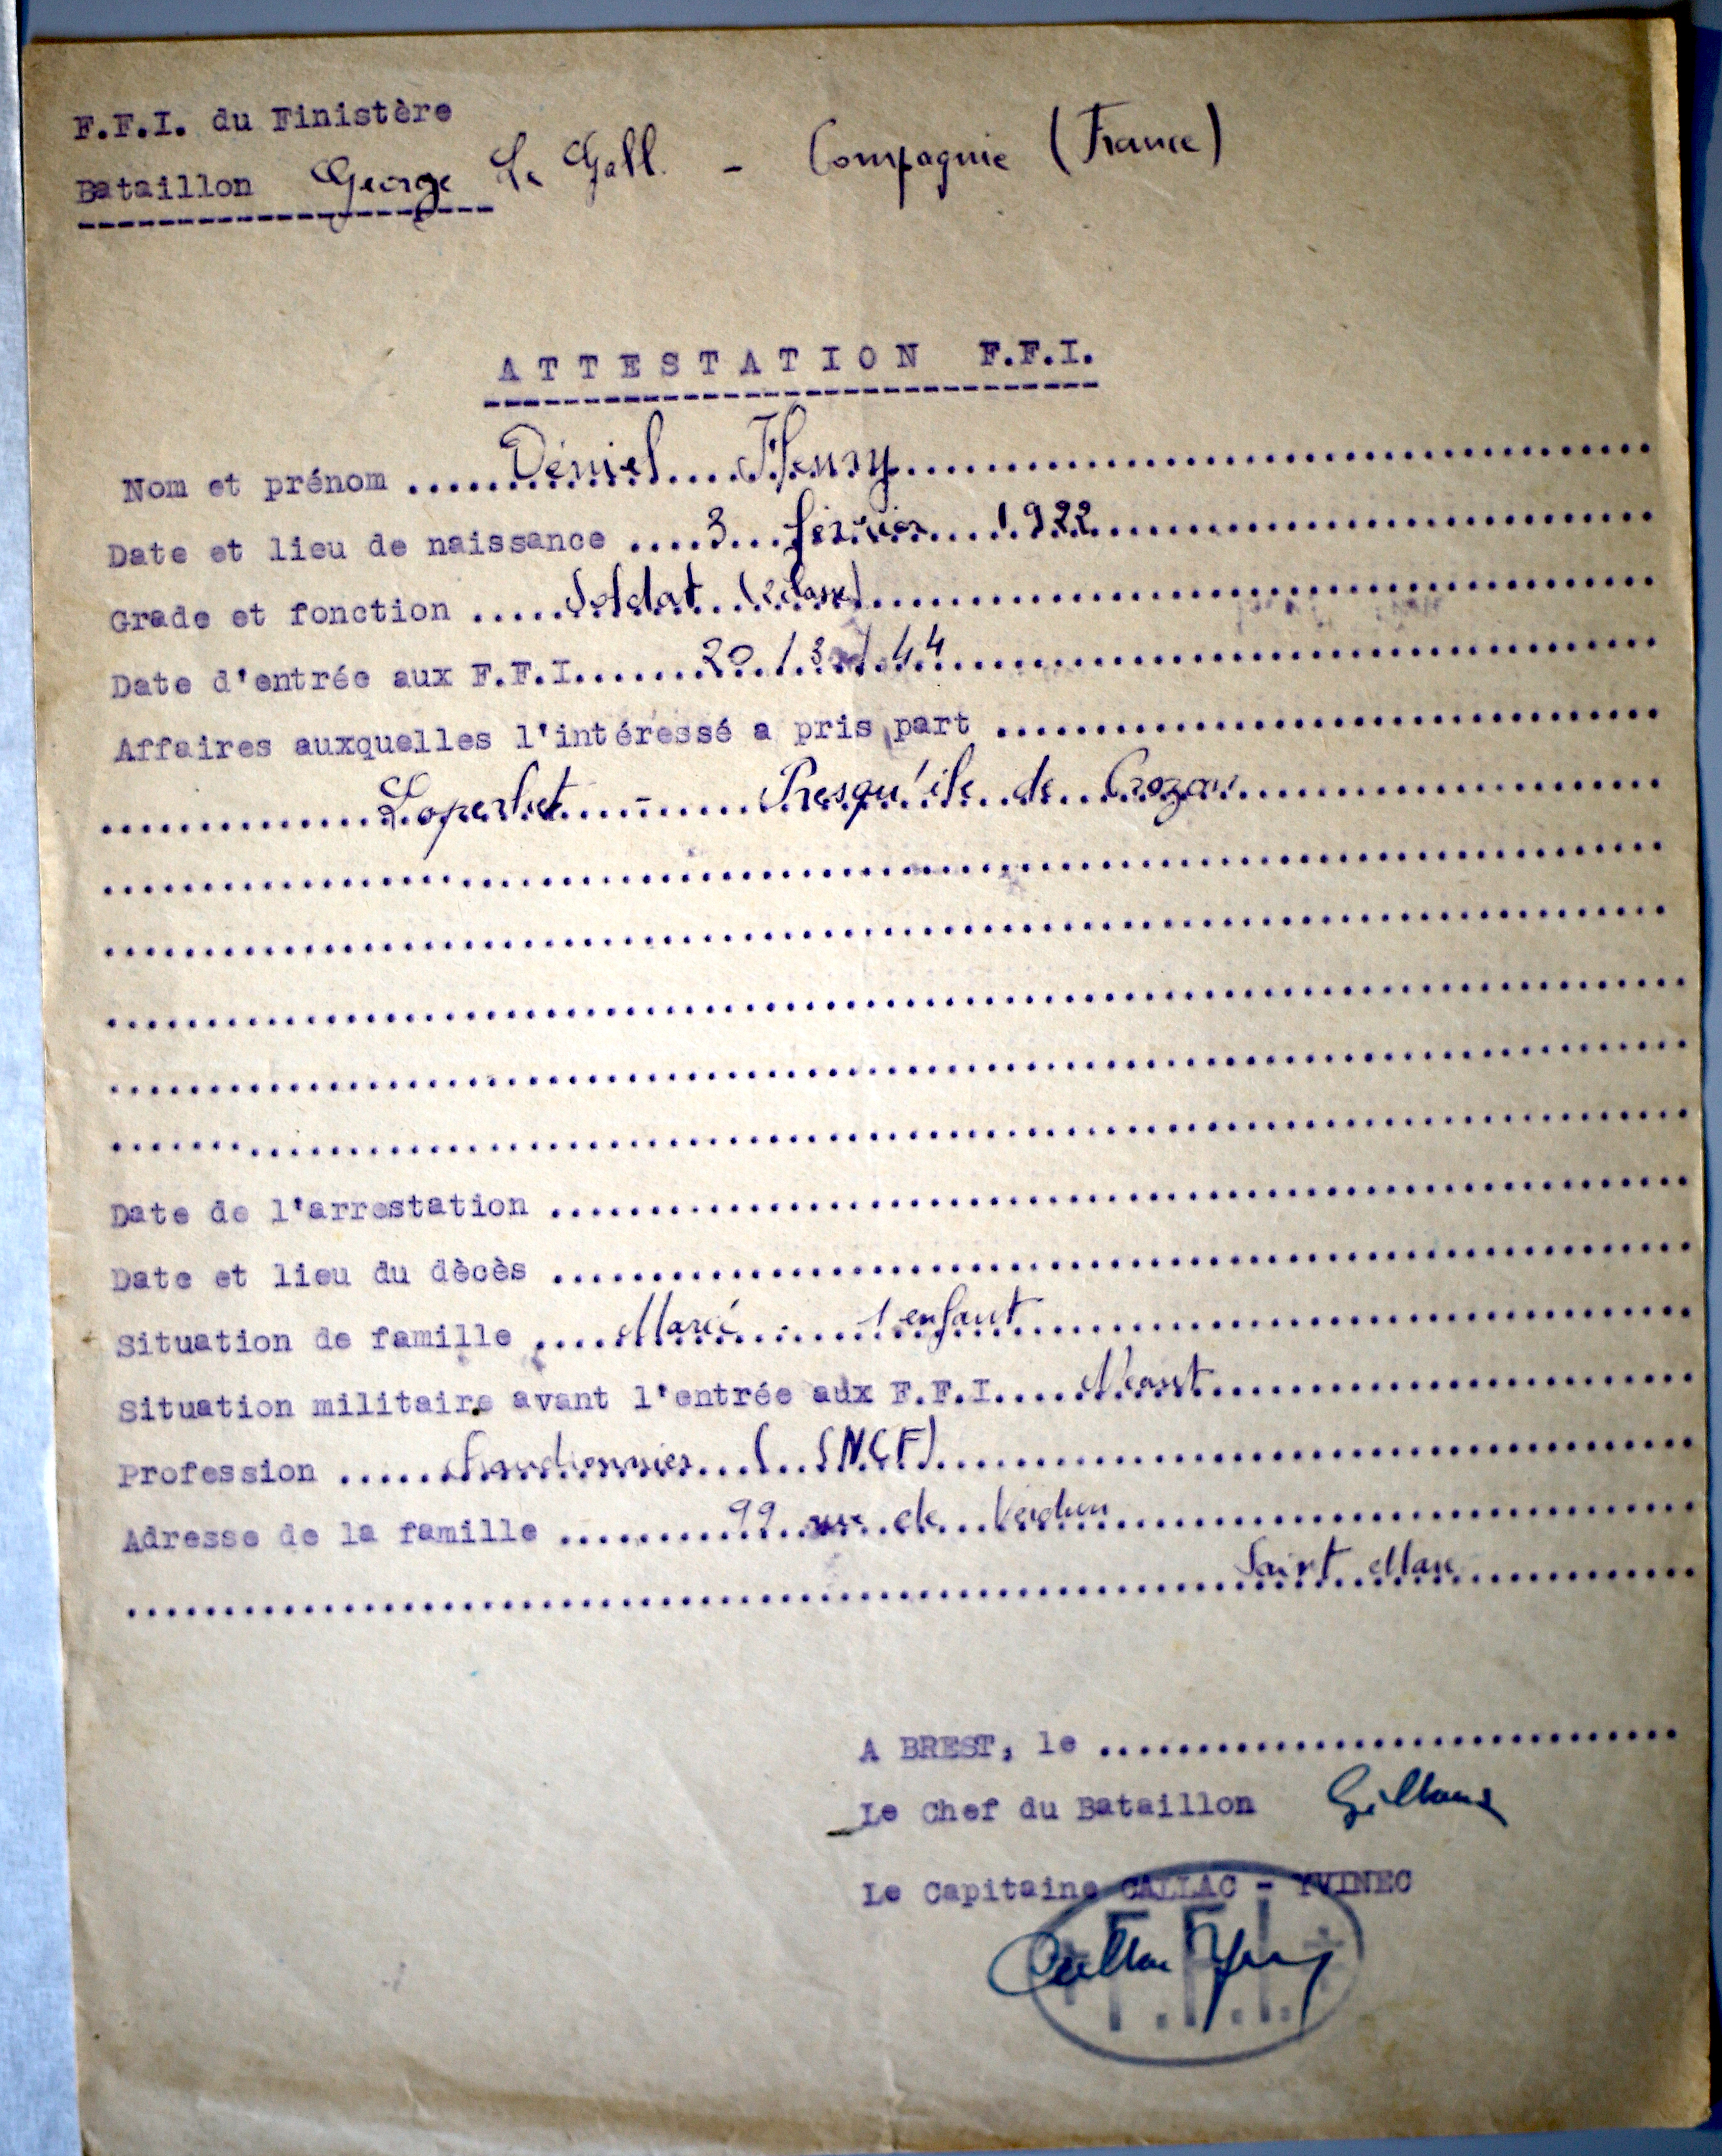 F.F.I. du Finistère
Bataillon George Le Gall. - Compagnie (France)
ATTESTATION F.F.I.
Nom et prénom ..... Déniel .... Henry .....
Date et lieu de naissance .... 3 .. février ... 1922 .....
Grade et fonction ..... Soldat (2 classe) .....
Date d'entrée aux F.F.I. ..... 20/3/44 .....
Affaires auxquelles l'intéressé a pris part .....
..... Loperhet ... - ... Presqu'île de Crozon .....
Date de l'arrestation .....
Date et lieu du dècès .....
Situation de famille .... Marié - 1 enfant .....
Situation militaire avant l'entrée aux F.F.I. .... Néant .....
Profession ..... Chaudronnier (SNCF) .....
Adresse de la famille ..... 99 rue de Verdun .....
..... Saint Marc .....
A BREST, le .....
Le Chef du Bataillon
Le Capitaine CALLAC - YVINEC
F.F.I.